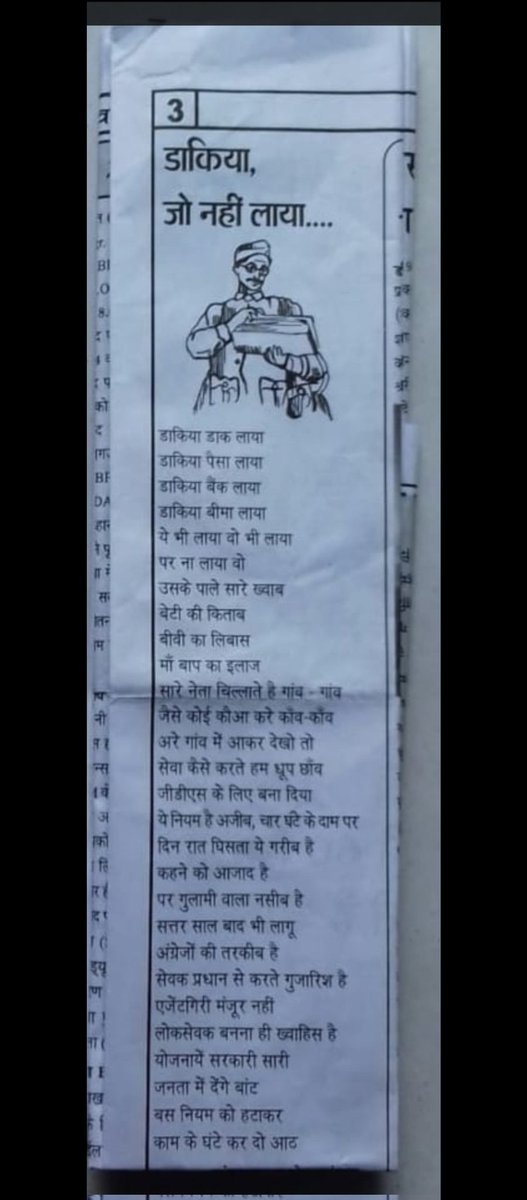 3
डाकिया,
जो नहीं लाया....
डाकिया डाक लाया
डाकिया पैसा लाया
डाकिया बैंक लाया
डाकिया बीमा लाया
ये भी लाया वो भी लाया
पर ना लाया वो
उसके पाले सारे ख्वाब
बेटी की किताब
बीवी का लिबास
माँ बाप का इलाज
सारे नेता चिल्लाते है गांव - गांव
जैसे कोई कौआ करे काँव-काँव
अरे गांव में आकर देखो तो
सेवा कैसे करते हम धूप छाँव
जीडीएस के लिए बना दिया
ये नियम है अजीब, चार घंटे के दाम पर
दिन रात घिसता ये गरीब है
कहने को आजाद है
पर गुलामी वाला नसीब है
सत्तर साल बाद भी लागू
अंग्रेजों की तरकीब है
सेवक प्रधान से करते गुजारिश है
एजेंटगिरी मंजूर नहीं
लोकसेवक बनना ही ख्वाहिस है
योजनायें सरकारी सारी
जनता में देंगे बांट
बस नियम को हटाकर
काम के घंटे कर दो आठ